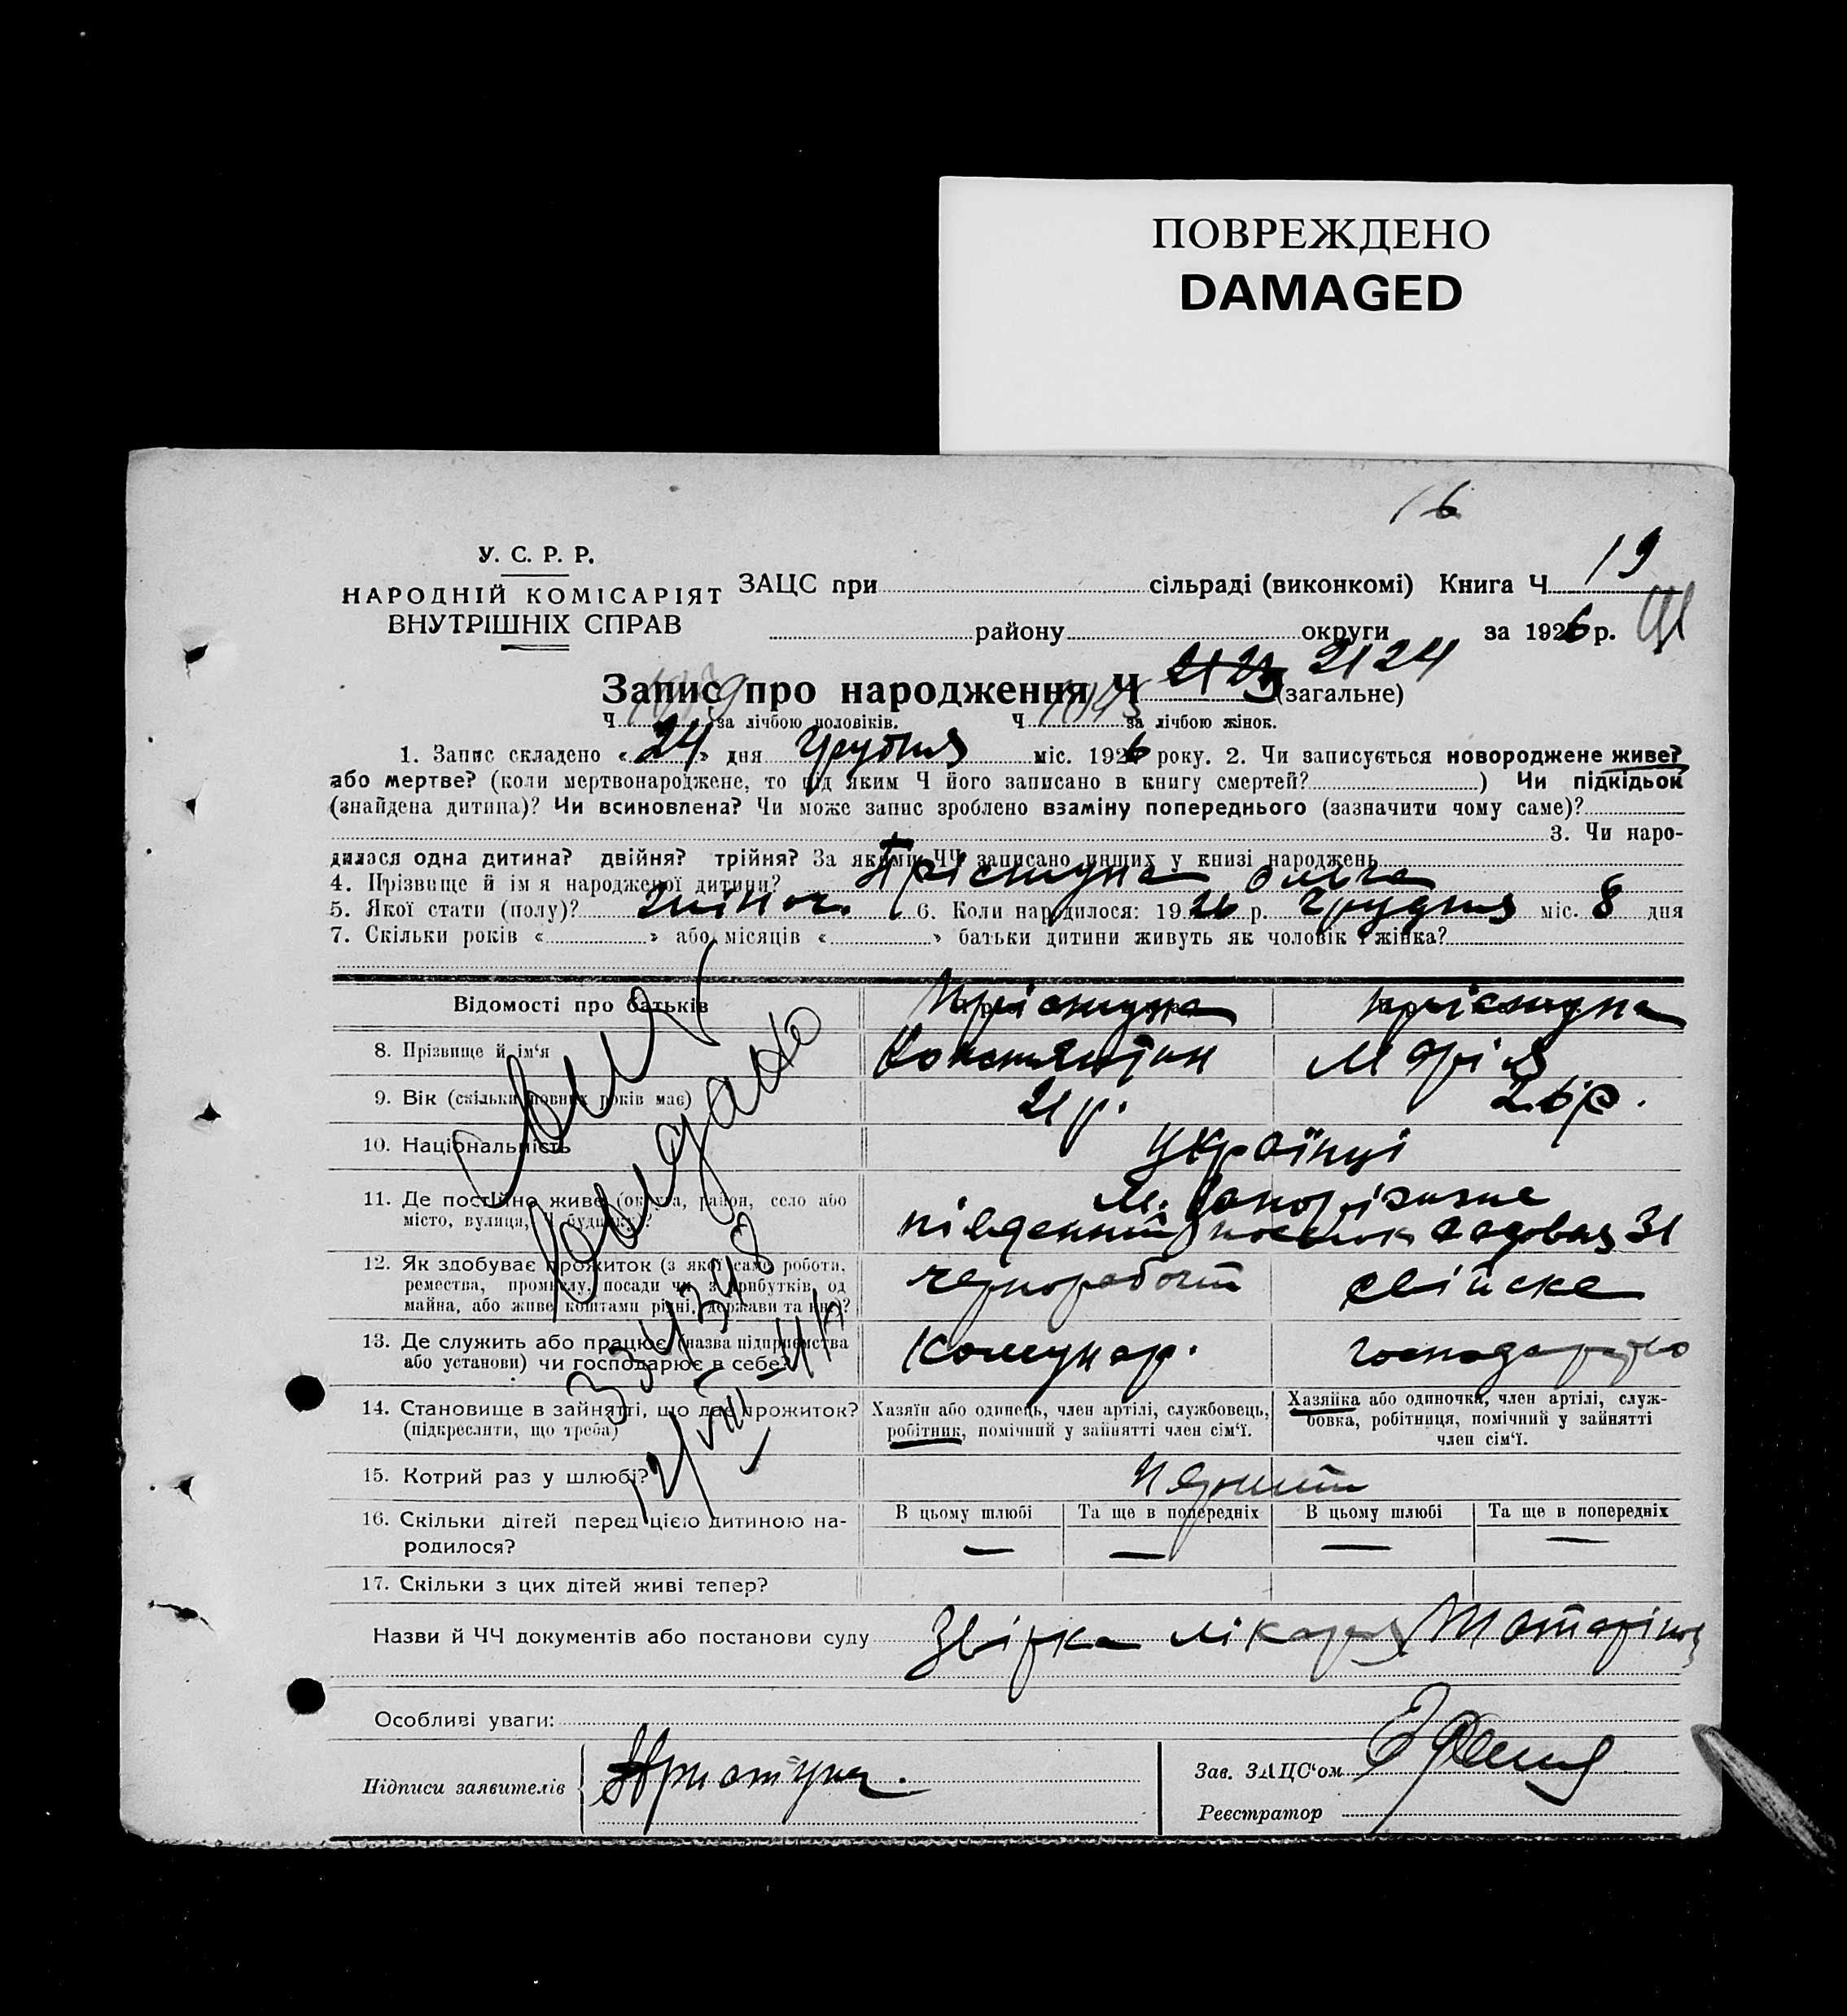 ПОВРЕЖДЕНО
DAMAGED
16
У. С. Р. Р.
НАРОДНІЙ КОМІСАРІЯТ
ВНУТРІШНІХ СПРАВ
ЗАЦС при сільраді (виконкомі) Книга Ч. 19
району округи за 1926 р.
Запис про народження Ч 2123 2124 (загальне)
Ч за лічбою чоловіків. Ч 1045 за лічбою жінок.
1. Запис складено «24» дня Грудня міс. 1926 року. 2. Чи записується новороджене живе?
або мертве? (коли мертвонароджене, то під яким Ч його записано в книгу смертей? ) Чи підкідьок
(знайдена дитина)? Чи всиновлена? Чи може запис зроблено взаміну попереднього (зазначити чому саме)?
3. Чи наро-
дилася одна дитина? двійня? трійня? За якими ЧЧ записано инших у книзі народжень
4. Прізвище й ім я народженої дитини? Пріступа Ольга
5. Якої стати (полу)? жіноч. 6. Коли народилося: 1926 р. Грудня міс. 8 дня
7. Скільки років « » або місяців « » батьки дитини живуть як чоловік і жінка?
Відомості про батьків Пріступа Пріступа
8. Прізвище й ім'я Константин Марія
9. Вік (скільки повних років має) 21 р. 26 р.
10. Національність Українці
11. Де постійно живе (округа, район, село або
місто, вулиця, Ч будинку)?
м. Запоріжжя
південний поселок Садовая 31
12. Як здобуває прожиток (з якої саме робота,
ремества, промислу, посади чи з прибутків од
майна, або живе коштами рідні, держави та инш)?
чорноробочий свійске
13. Де служить або працює (назва підприємства
або установи) чи господарює в себе?
Комунар. господарство
14. Становище в зайнятті, що дає прожиток?
(підкреслити, що треба)
Хазяїн або одинець, член артілі, службовець,
робітник, помічний у зайнятті член сім'ї.
Хазяйка або одиночка, член артілі, служ-
бовка, робітниця, помічний у зайнятті
член сім'ї.
15. Котрий раз у шлюбі?
16. Скільки дітей перед цією дитиною на-
родилося?
В цьому шлюбі Та ще в попередніх В цьому шлюбі Та ще в попередніх
— — — —
17. Скільки з цих дітей живі тепер?
Назви й ЧЧ документів або постанови суду Звірка лікаря
Особливі уваги:
Підписи заявителів Приступа.
Зав. ЗАЦС'ом
Реєстратор